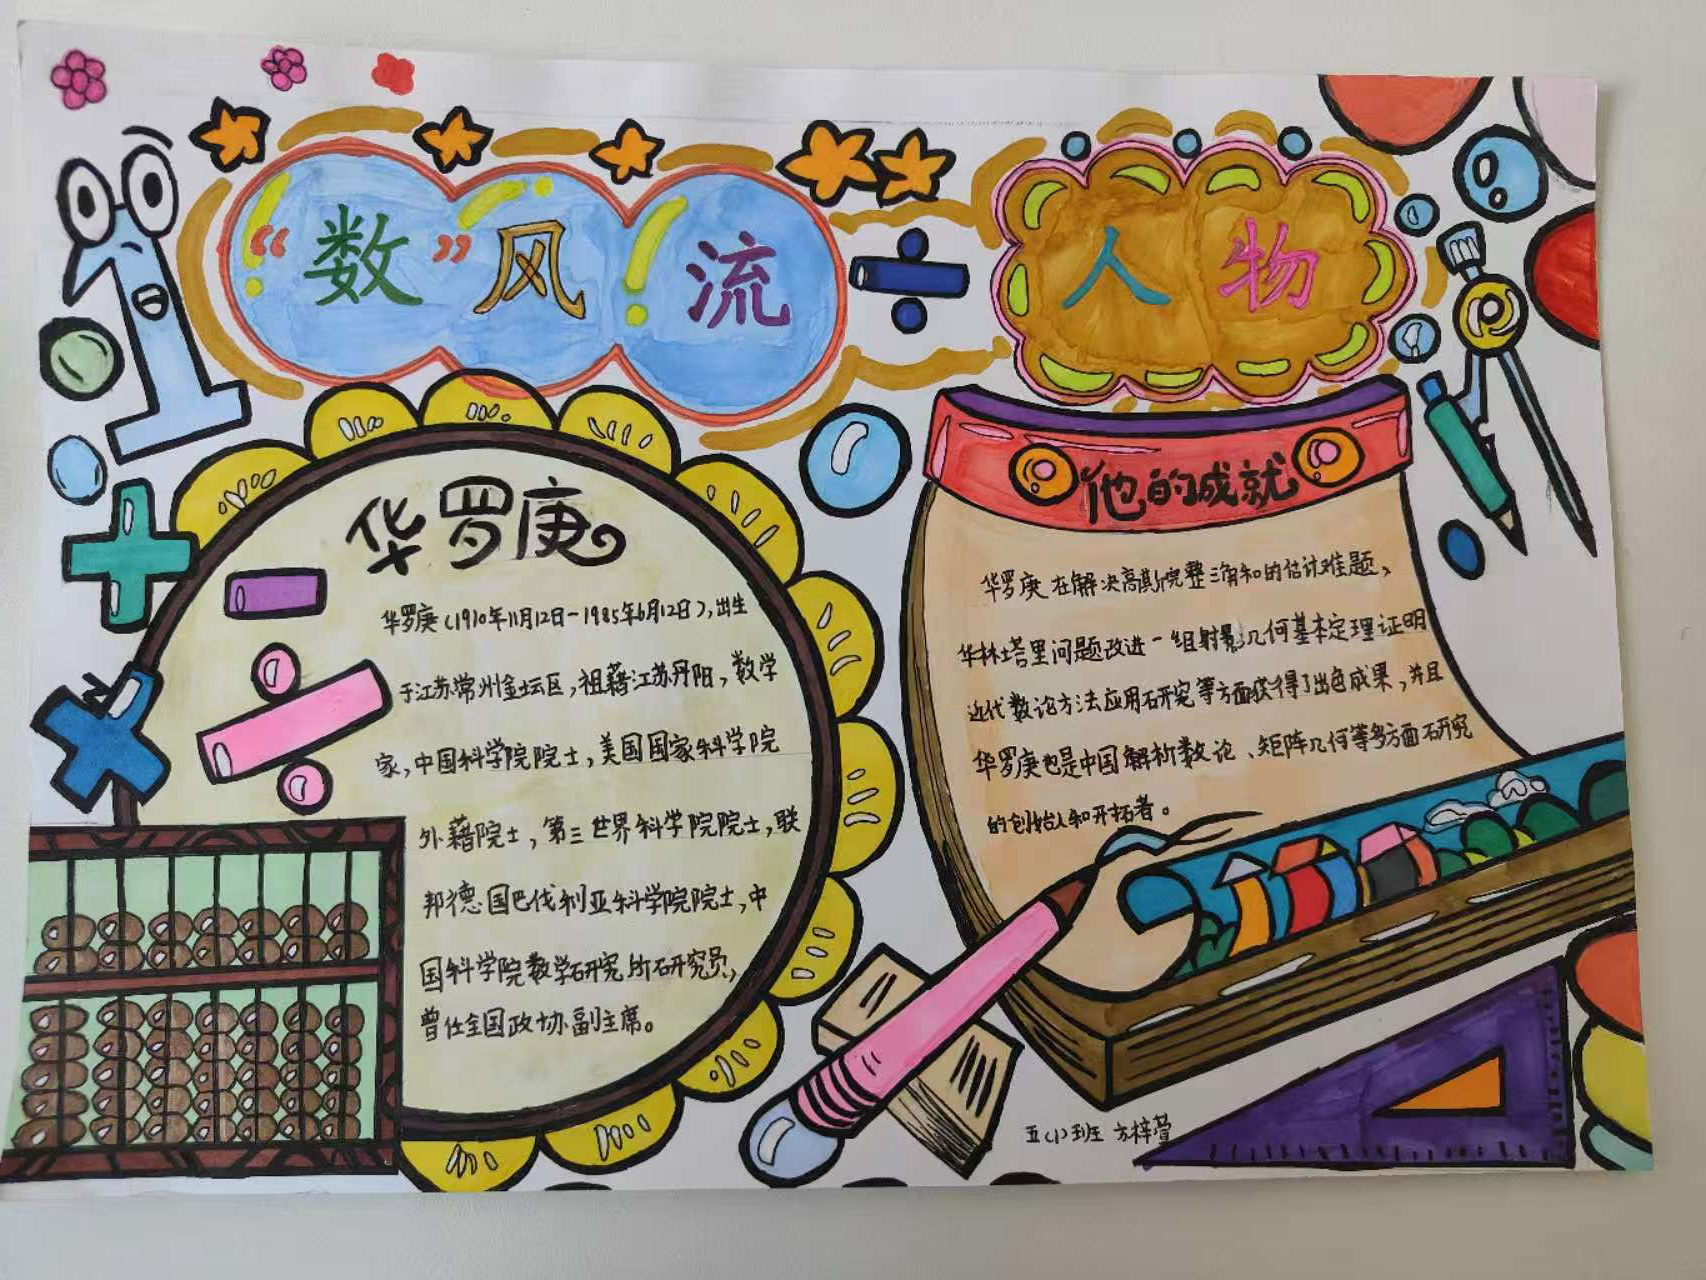 “数”风流人物
华罗庚
华罗庚(1910年11月12日-1985年6月12日),出生
于江苏常州金坛区,祖籍江苏丹阳,数学
家,中国科学院院士,美国国家科学院
外籍院士,第三世界科学院院士,联
邦德国巴伐利亚科学院院士,中
国科学院数学研究所研究员,
曾任全国政协副主席。
他的成就
华罗庚在解决高斯完整三角和的估计难题、
华林塔里问题改进一组射影几何基本定理证明
近代数论方法应用研究等方面获得了出色成果,并且
华罗庚也是中国解析数论、矩阵几何等多方面研究
的创始人和开拓者。
五(1)班 方梓萱